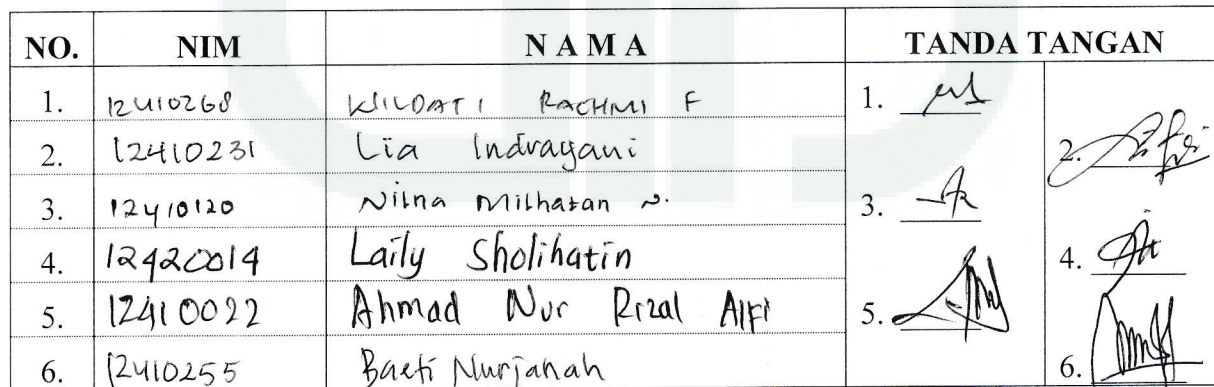 NO. NIM NAMA TANDA TANGAN
1. 12410268 WILDATI RACHMI F 1.
2. 12410231 Lia Indrayani 2.
3. 12410120 Nilna Milhatan N. 3.
4. 12420014 Laily Sholihatin 4.
5. 12410022 Ahmad Nur Rizal Alfi 5.
6. 12410255 Baeti Nurjanah 6.